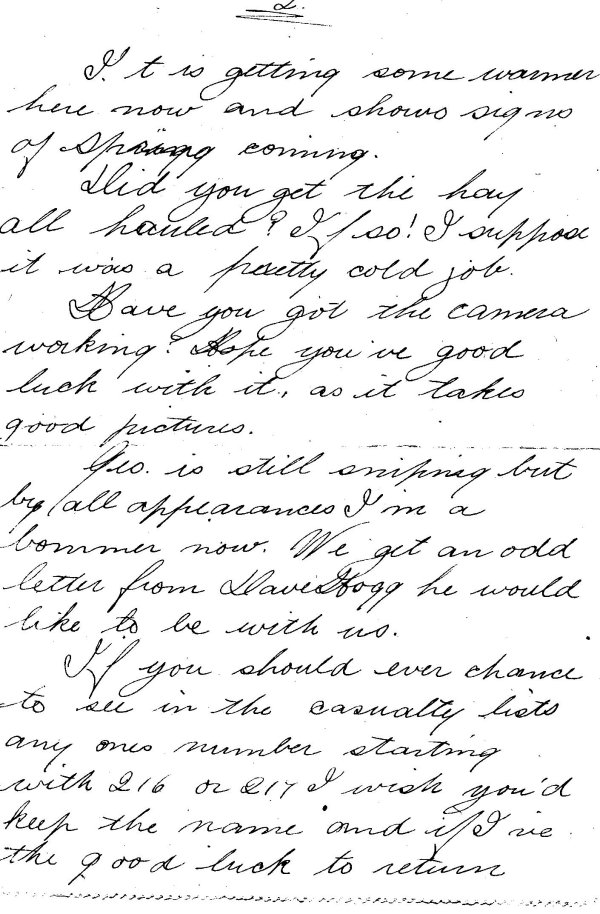 2.
I. t is getting some warmer
here now and shows signs
of Spring coming.
Did you get the hay
all hauled? If so! I suppose
it was a pretty cold job.
Have you got the camera
working? Hope you've good
luck with it, as it takes
good pictures.
Geo. is still sniping but
by all appearances I'm a
bommer now. We get an odd
letter from Dave Hogg he would
like to be with us.
If you should ever chance
to see in the casualty lists
any ones number starting
with 216 or 217 I wish you'd
keep the name and if I've
the good luck to return